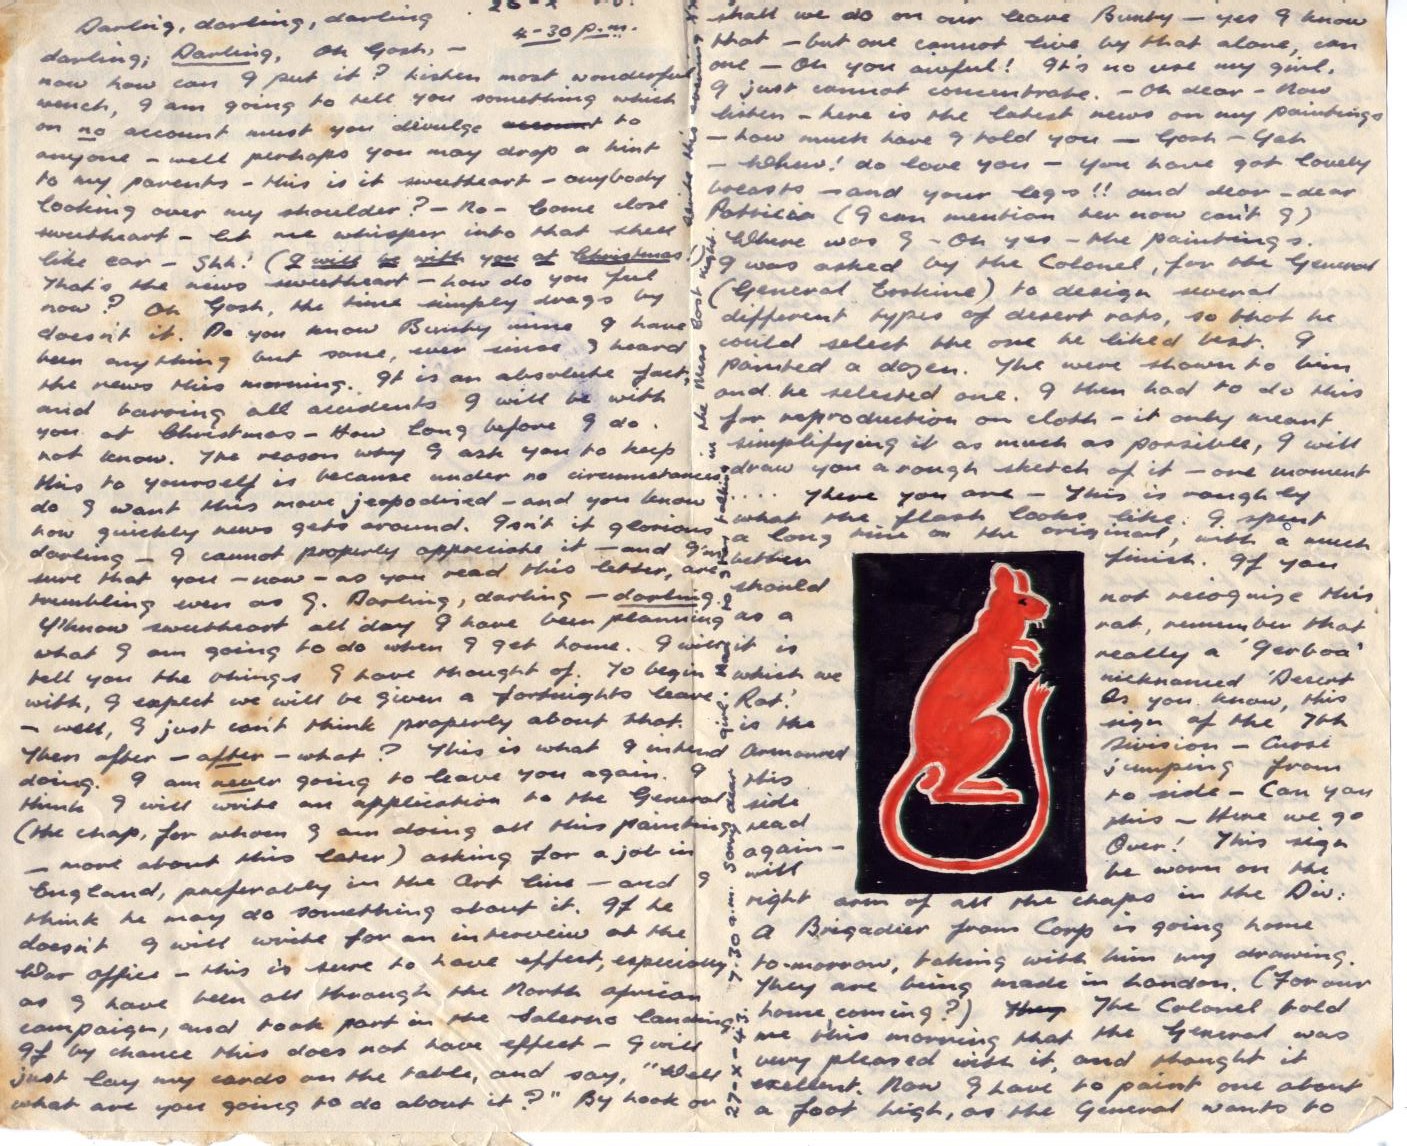 26-X
4-30 p.m.
Darling, darling, darling
darling; Darling, Oh Gosh, —
now how can I put it? Listen most wonderful
wench, I am going to tell you something which
on no account must you divulge account to
anyone — well perhaps you may drop a hint
to my parents — this is it sweetheart — anybody
looking over my shoulder? — No — Come close
sweetheart — let me whisper into that shell
like ear — Shh! (I will be with you at Christmas!)
That's the news sweetheart — how do you feel
now? Oh Gosh, the time simply drags by
doesn't it. Do you know Bunty mine I have
been anything but sane, ever since I heard
the news this morning. It is an absolute fact,
and barring all accidents I will be with
you at Christmas — How long before I do
not know. The reason why I ask you to keep
this to yourself is because under no circumstances
do I want this move jeopodised — and you know
how quickly news gets around. Isn't it glorious
darling — I cannot properly appreciate it — and I'm
sure that you — now — as you read this letter, are
trembling even as I. Darling, darling — darling.
Y'know sweetheart all day I have been planning
what I am going to do when I get home. I will
tell you the things I have thought of. To begin
with, I expect we will be given a fortnights leave
— well, I just can't think properly about that.
Then after — after — what? This is what I intend
doing. I am never going to leave you again. I
think I will write an application to the General
(the chap, for whom I am doing all this painting
— more about this later) asking for a job in
England, preferably in the Art line — and I
think he may do something about it. If he
doesn't I will write for an interveiw at the
War office — this is sure to have effect, especially
as I have been all through the North African
campaign, and took part in the Salerno landing.
If by chance this does not have effect — I will
just lay my cards on the table, and say, "Well
what are you going to do about it?" By hook or
27-X-43. 7.30 a.m. Sorry dear girl. in the Mess last night.
shall we do on our leave Bunty — yes I know
that — but one cannot live by that alone, can
one — Oh you awful! It's no use my girl,
I just cannot concentrate. — Oh dear — Now
listen — here is the latest news on my paintings
— how much have I told you — Gosh — Yeh
— Whew! do love you — you have got lovely
breasts — and your legs!! and dear — dear
Patricia (I can mention her now can't I)
Where was I — Oh yes — the paintings.
I was asked by the Colonel, for the General
(General Erskine) to design several
different types of desert rats, so that he
could select the one he liked best. I
painted a dozen. The were shown to him
and he selected one. I then had to do this
for reproduction on cloth — it only meant
simplifying it as much as possible, I will
draw you a rough sketch of it — one moment
.... There you are — This is roughly
what the flash looks like. I spent
a long time on the original, with a much
better finish. If you
should not recognise this
as a rat, remember that
it is really a 'Gerboa'
which we nicknamed 'Desert
Rat.' As you know, this
is the sign of the 7th
Armoured Division — Curse
this jumping from
side to side — Can you
read this — Here we go
again — Over! This sign
will be worn on the
right arm of all the chaps in the Div:
A Brigadier from Corp is going home
to-morrow, taking with him my drawing.
They are being made in London. (For our
home coming?) They The Colonel told
me this morning that the General was
very pleased with it, and thought it
exellent. Now I have to paint one about
a foot high, as the General wants to